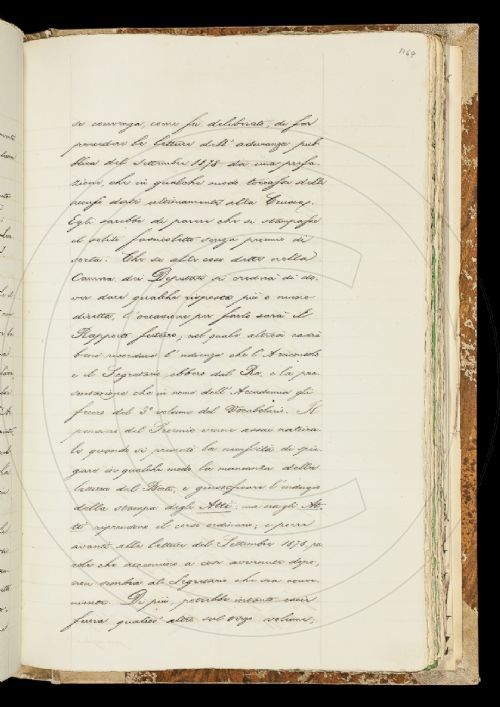 1169
se convenga, come fu deliberato, di far
precedere la lettura dell'adunanza pub
blica del settembre 1878 da una prefa-
zione, che in qualche modo toccasse delle
accuse date ultimamente alla Crusca.
Egli sarebbe di parere che si stampasse
il solito fascicoletto senza premio di
sorta. Che se alle cose dette nella
Camera dei Deputati si crederà di do-
ver dare qualche risposta più o meno
diretta, l'occasione per farlo sarà il
Rapporto futuro, nel quale altresì cadrà
bene ricordare l'udienza che l'Arciconsolo
e il Segretario ebbero dal Re, e la pre-
sentazione che in nome dell'Accademia gli
fecero del 3º volume del Vocabolario. Il
pensiero del Proemio venne assai natura
le quando si presentò la necessità di spie
gare in qualche modo la mancanza della
lettura del e giustificare l'indugio
della stampa degli Atti: ma ora gli At-
ti riprendono il corso ordinario; e porre
avanti alla lettura del Settembre 1878 pa
role che accennino a cose avvenute dopo,
non sembra al Segretario che sia conve-
niente. Di più, potrebbe intanto esser
fuora qualcos'altro sul terzo volume;